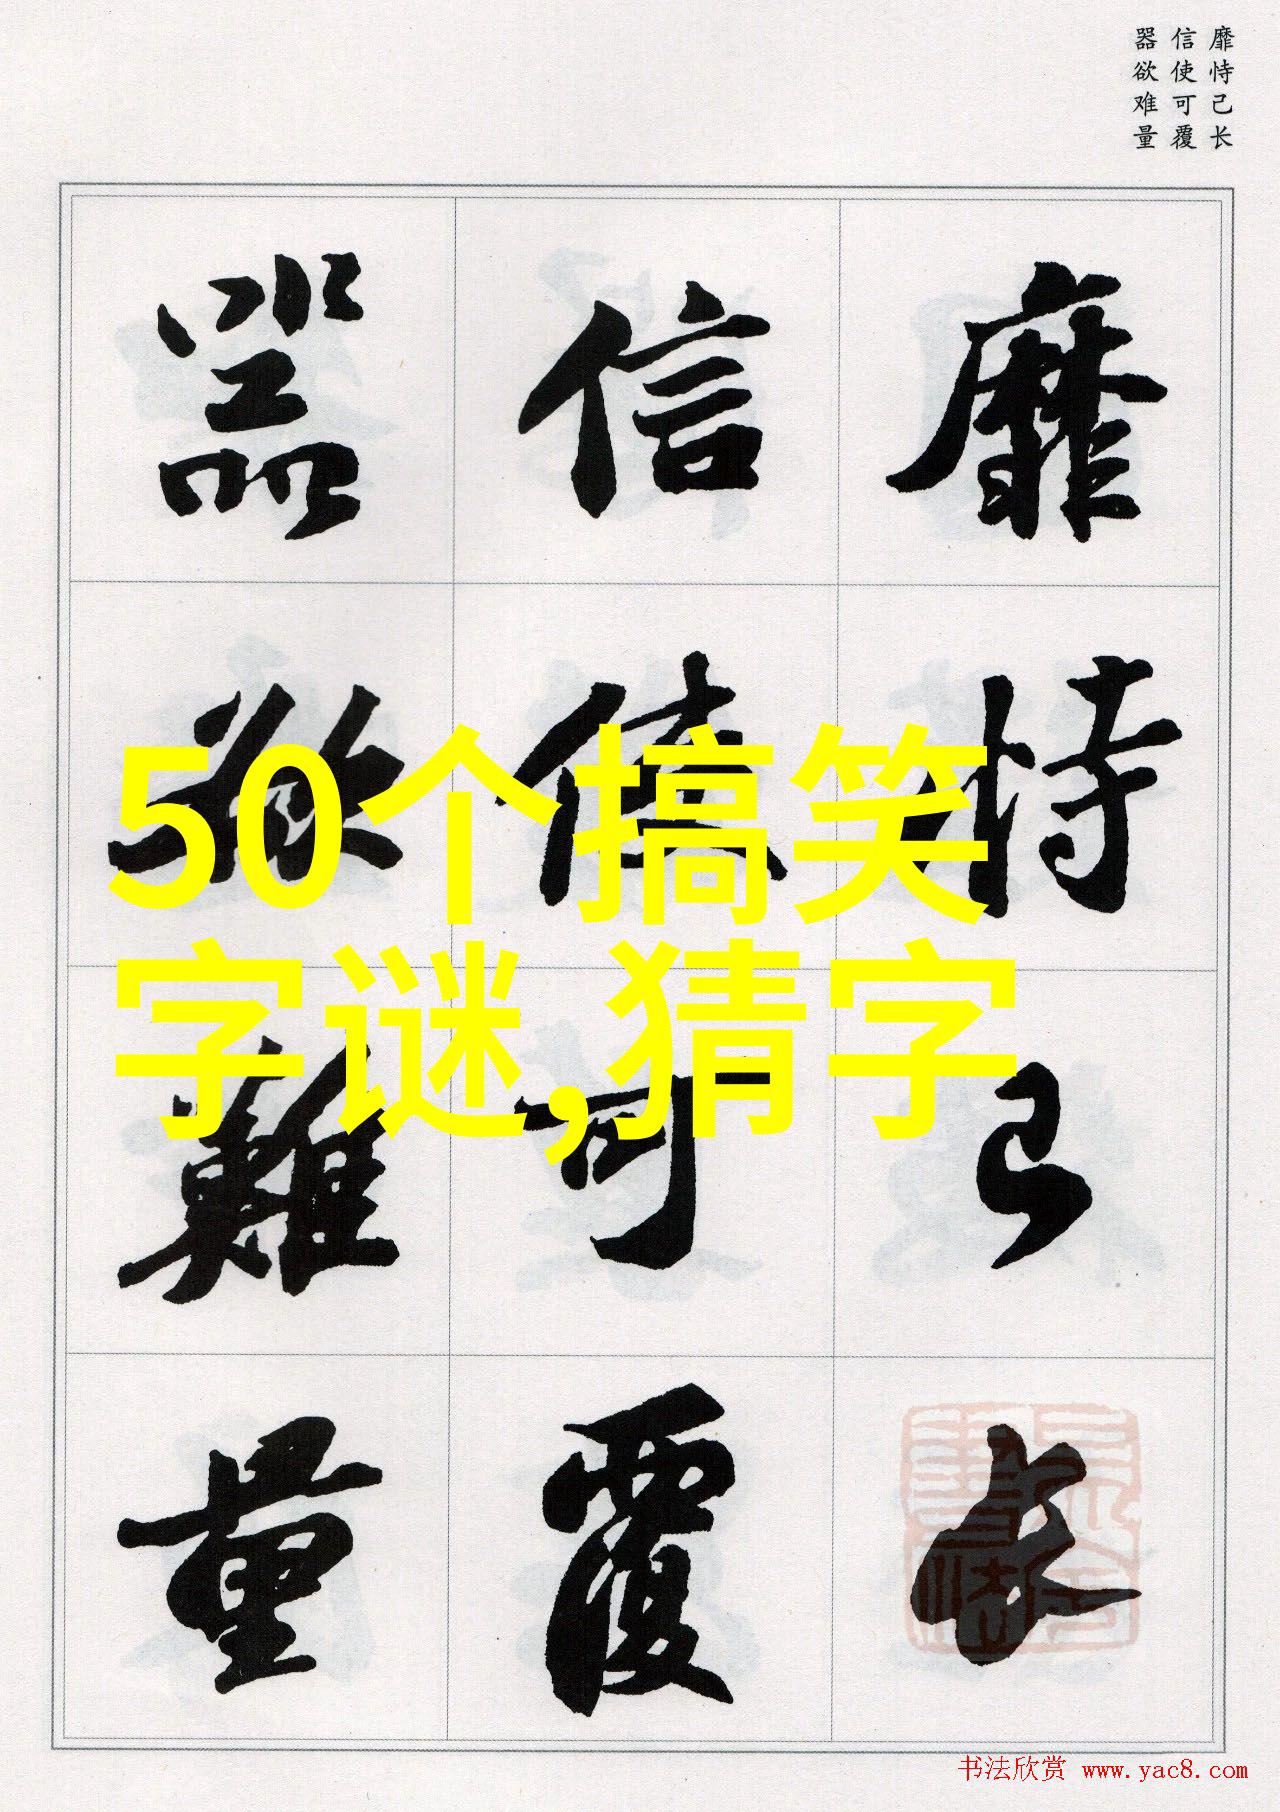 靡恃己长
信使可覆
器欲难量
靡恃己長
信使可覆
器欲難量
50个搞笑
字谜,猜字
书法欣赏 www.yac8.com